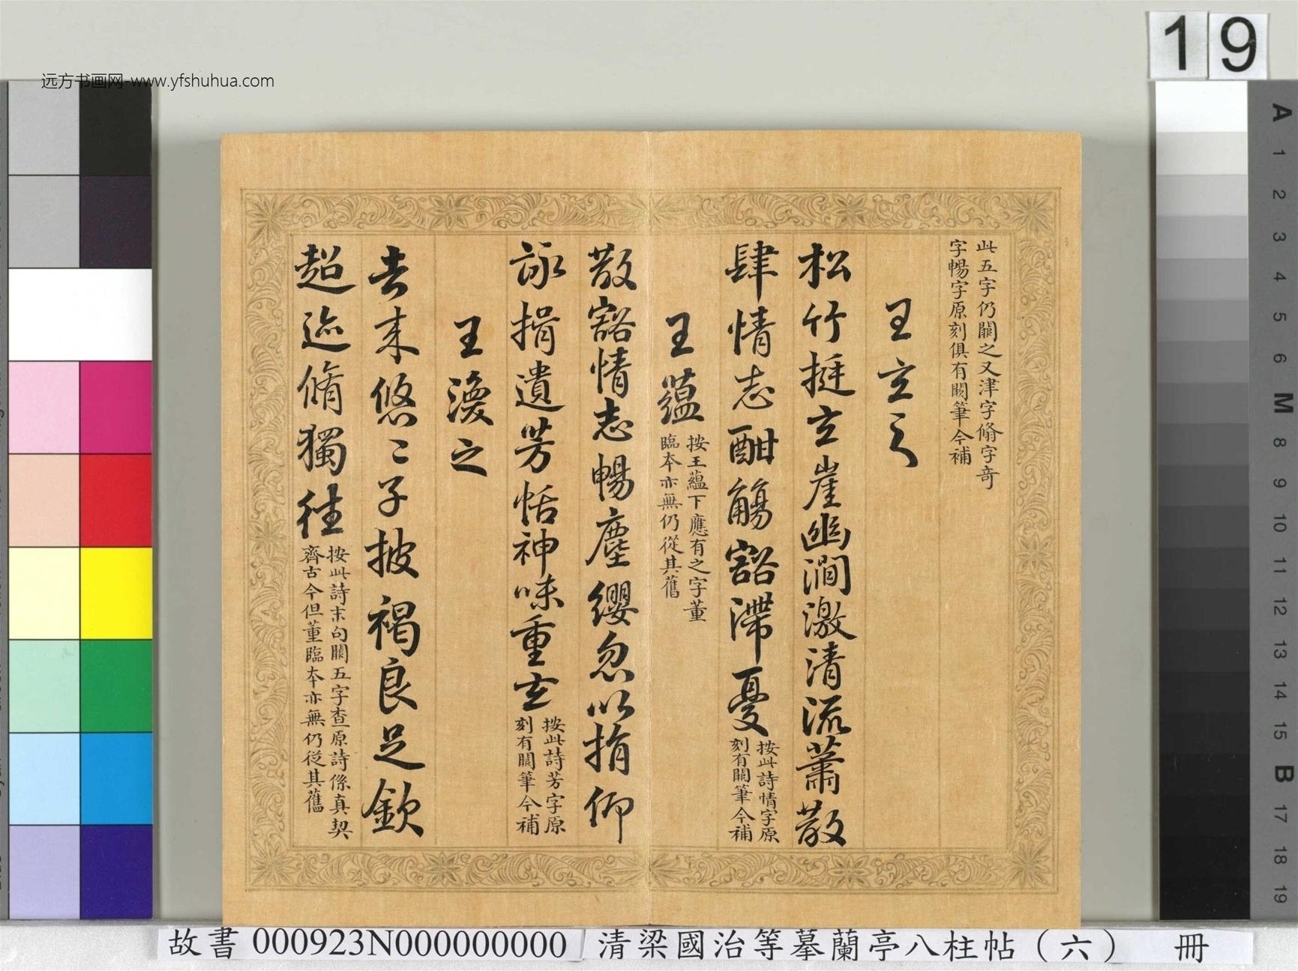 19
远方书画网-www.yfshuhua.com
此五字仍闕之又津字脩字奇
字暢字原刻俱有闕筆今補
王玄之
松竹挺玄崖幽澗激清流蕭散
肆情志酣觴豁滯憂
按此詩情字原
刻有闕筆今補
王蘊
按王蘊下應有之字董
臨本亦無仍從其舊
散豁情志暢塵纓忽以捐仰
詠挹遺芳恬神味重玄
按此詩芳字原
刻有闕筆今補
王渙之
去来悠〻子披褐良足欽
超迹脩獨往
按此詩末句闕五字查原詩係真契
齊古今但董臨本亦無仍從其舊
A 1 2 3 4 5 6 M 8 9 10 11 12 13 14 15 B 17 18 19
故書 000923N000000000 清梁國治等摹蘭亭八柱帖（六） 冊